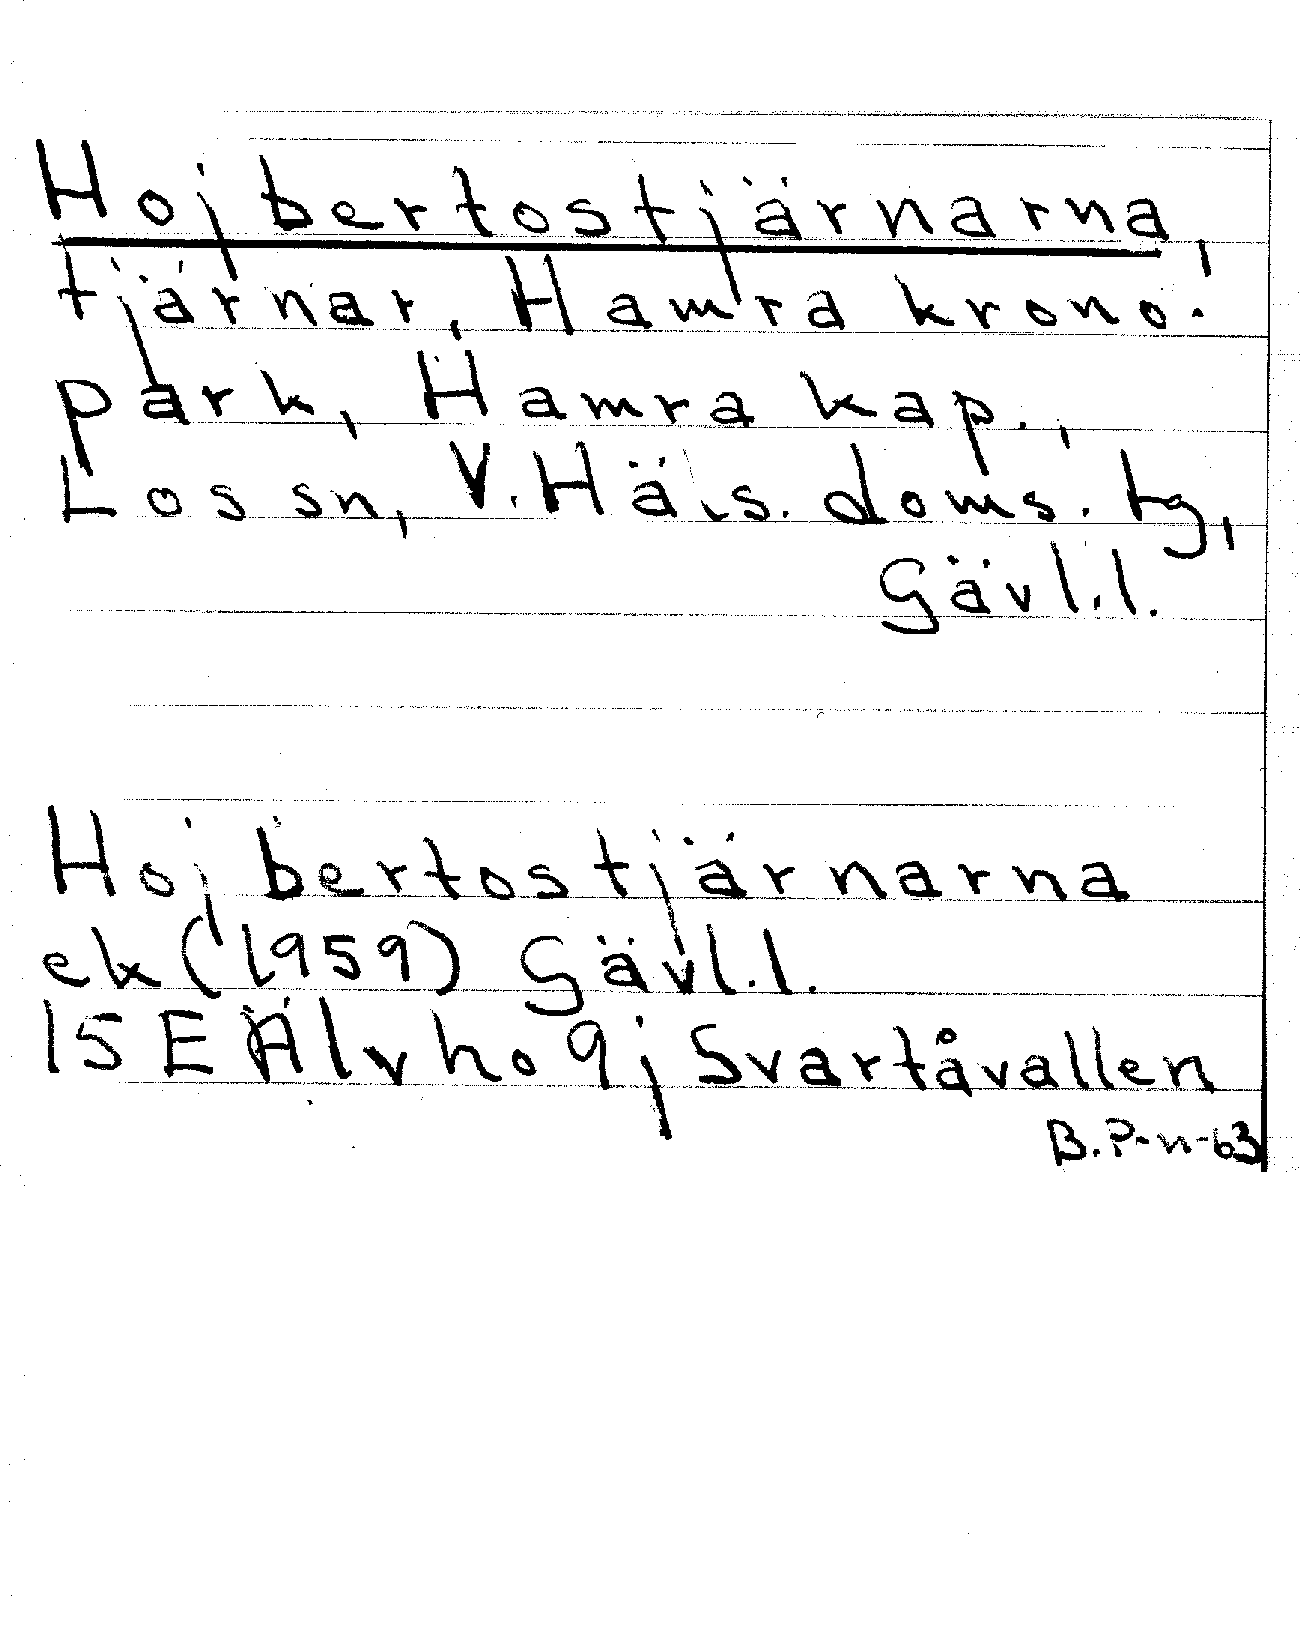 Hojbertostjärnarna,
tjärnar, Hamra krono-
park, Hamra kap.,
Los sn, V. Häls. doms. tg,
Gävl.l.
Hojbertostjärnarna
ek (1959) Gävl.l.
15E Älvho 9j Svartåvallen
B.P-n-63